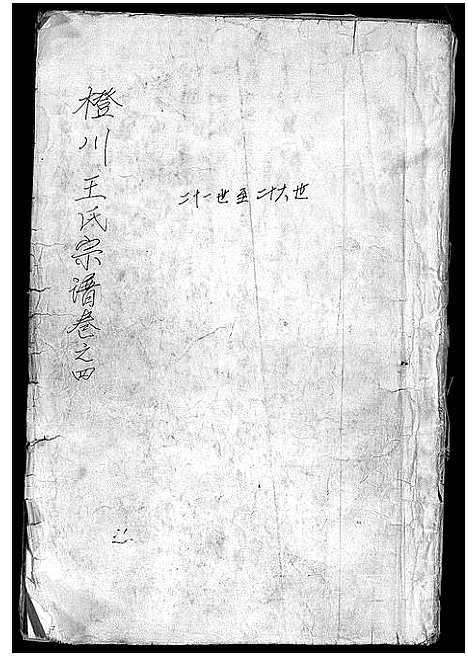 橙川王氏宗谱卷之四
二十一世至二十六世